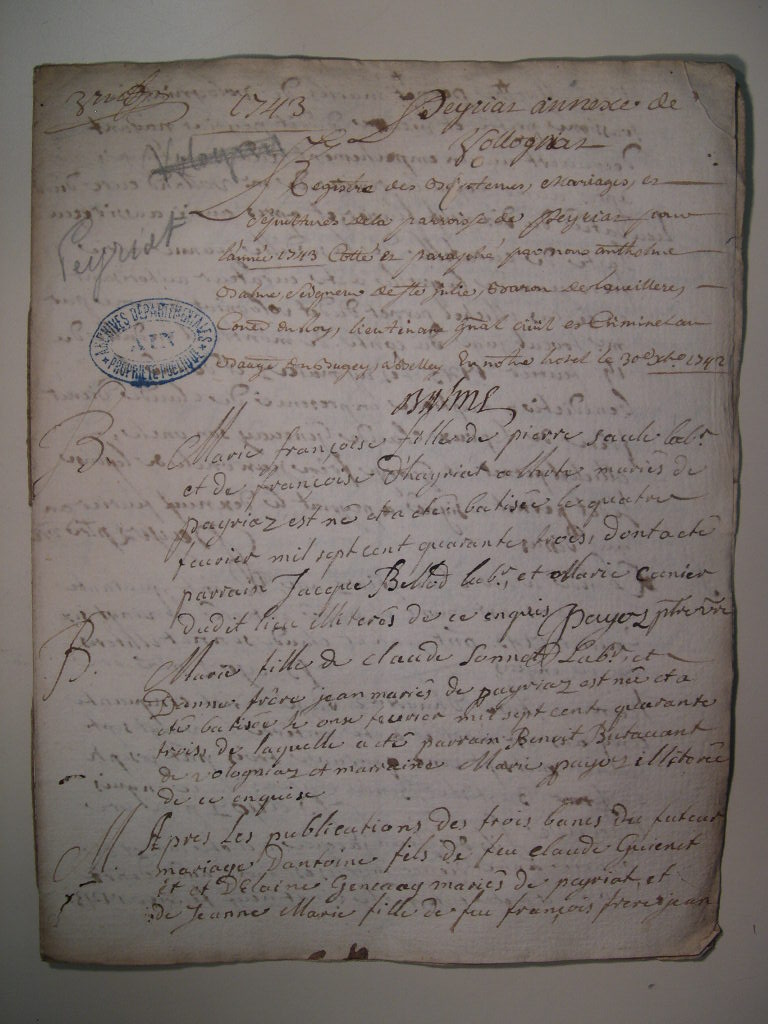 1743 Peyriaz annexe de
Vollogniaz
Peyriat
Registre des Baptemes, Mariages, et
sepultures de la parroisse de Peyriaz pour
l'année 1743 Cotté et paraphé par nous anthelme
Balme, Seigneur de Ste Julie, Baron de
Coner du Roy, lieutenant gnal civil et Criminel au
Bauge du Bugey, a Belley En notre hotel le 30e xbe 1742
ARCHIVES DÉPARTEMENTALES
AIN
PROPRIÉTÉ PUBLIQUE
Balme
B Marie françoise fille de pierre labr
et de françoise D'hayriat mariés de
payriaz est ne et a eté batisée le quatre
feuvrier mil sept cent quarante trois, dont a eté
parrain Jacque Bellod labr, et Marie
dudit lieu illiterés de ce enquis payoz ptre vre
B. Marie fille de claude Sonnet Labr, et
D'anne frère jean mariés de payriaz est née et a
eté batisée le onse feuvrier mil sept cent quarante
trois de laquelle a eté parrain Benoit Butavant
de vologniaz et marraine Marie payoz illiterée
de ce enquise
M. Apres les publications des trois bancs du futeur
mariage D'antoine fils de feu claude
et et DElaine mariés de payriat et
de Jeanne Marie fille de feu françois frere jean